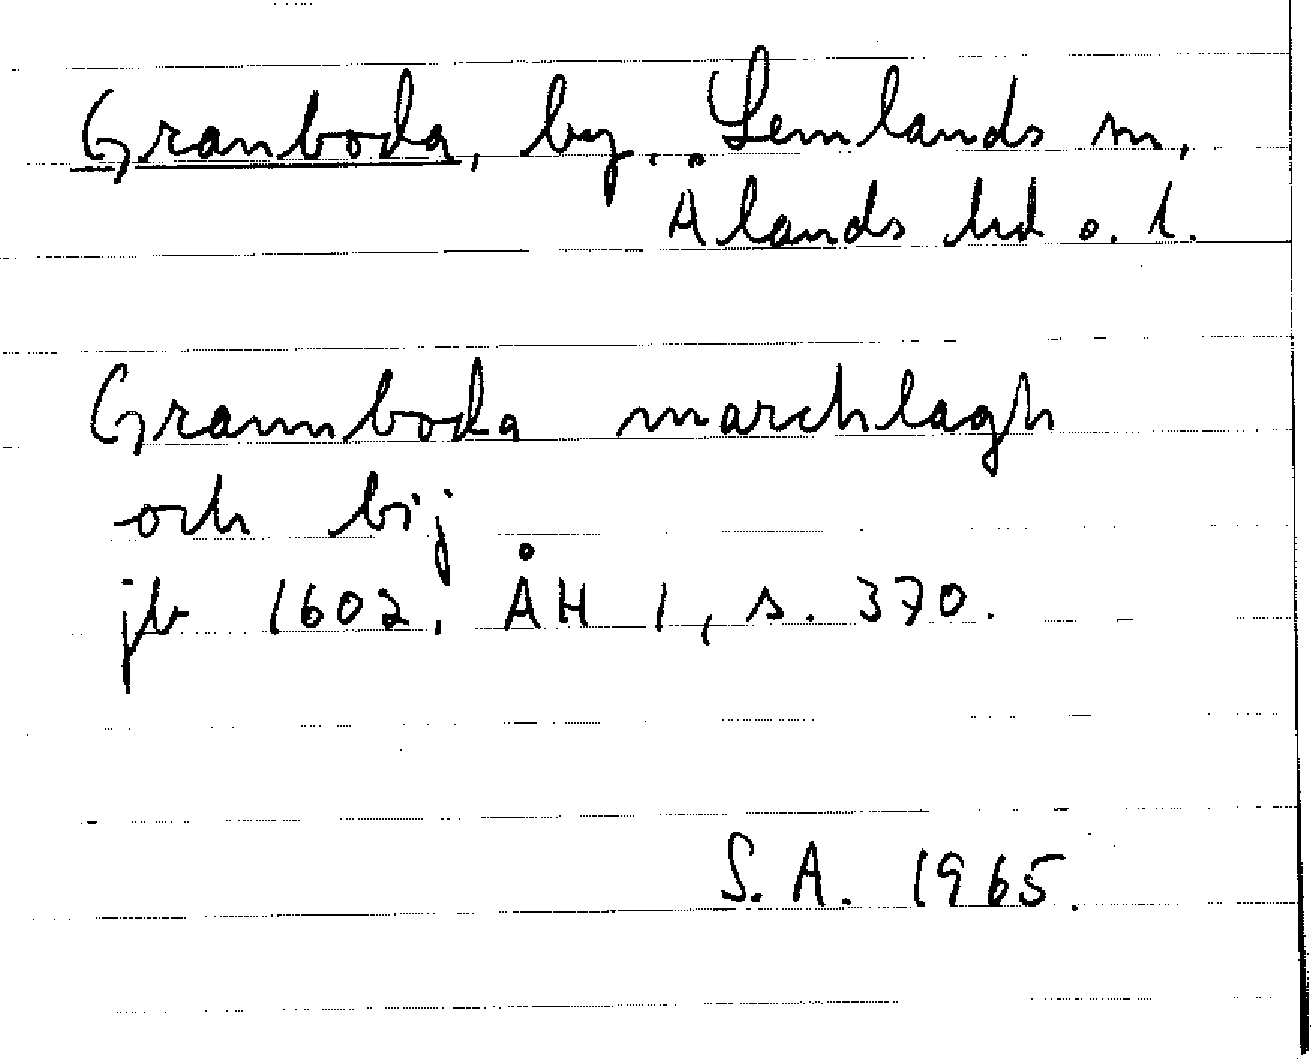 Granboda, by. Lemlands sn,
Ålands hd o. l.
Grannboda marchlagh
och bij
jb 1602. ÅH 1, s. 370.
S. A. 1965.